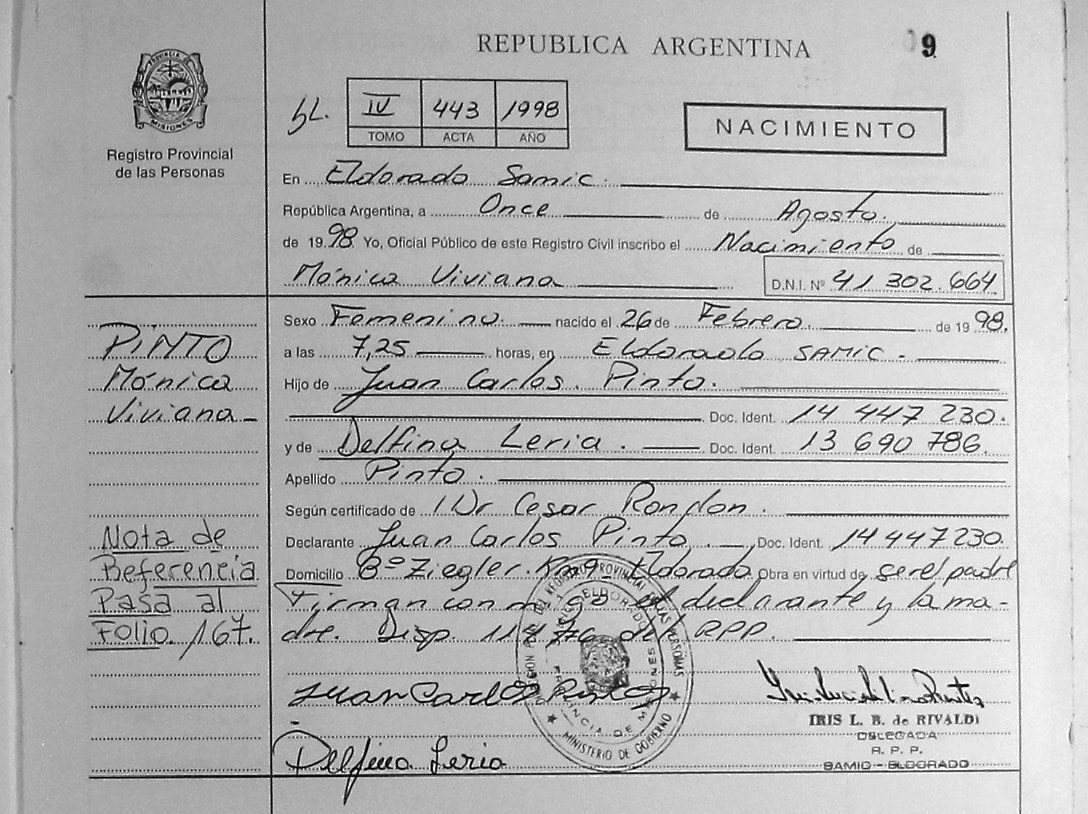 REPUBLICA ARGENTINA
9
PROVINCIA DE MISIONES
Registro Provincial
de las Personas
bL. IV 443 1998
TOMO ACTA AÑO
NACIMIENTO
En Eldorado Samic.
República Argentina, a Once de Agosto.
de 1998 Yo, Oficial Público de este Registro Civil inscribo el Nacimiento de
Mónica Viviana D.N.I. Nº 41 302.664
Sexo Femenino. nacido el 26 de Febrero. de 1998.
a las 7,25 horas, en Eldorado SAMIC.
Hijo de Juan Carlos. Pinto.
Doc. Ident. 14 447 230.
y de Delfina Leria. Doc. Ident. 13 690 786.
Apellido Pinto.
Según certificado de Dr Cesar Rondon.
Declarante Juan Carlos Pinto. Doc. Ident. 14447230.
Domicilio Bº Ziegler. Eldorado Obra en virtud de ser el padre
Firman conmigo el declarante y la ma-
dre. Disp. RPP.
PINTO
Mónica
Viviana
Nota de
Referencia
Pasa al
Folio 167.
Juan Carlos Pinto
Delfina Leria
MINISTERIO DE GOBIERNO
IRIS L. B. de RIVALDI
DELEGADA
R. P. P.
SAMIC - ELDORADO